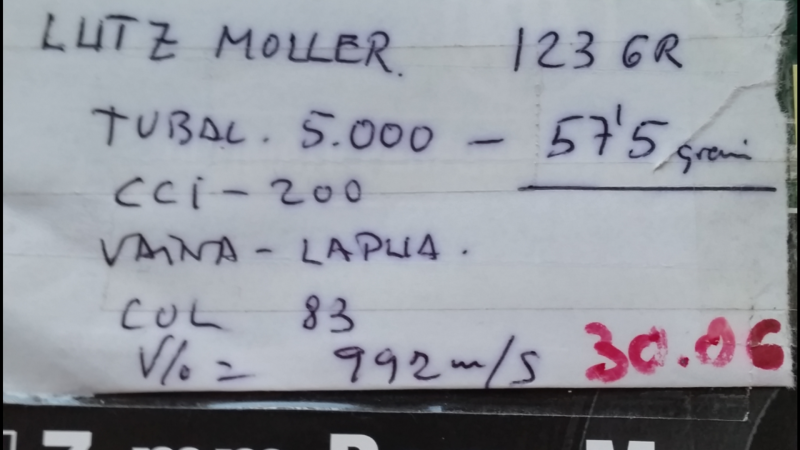 LUTZ MOLLER. 123 GR
TUBAL. 5.000 - 57'5 grain
CCI - 200
VAINA - LAPUA.
COL 83
V/o = 992 m/s 30.06
7 mm